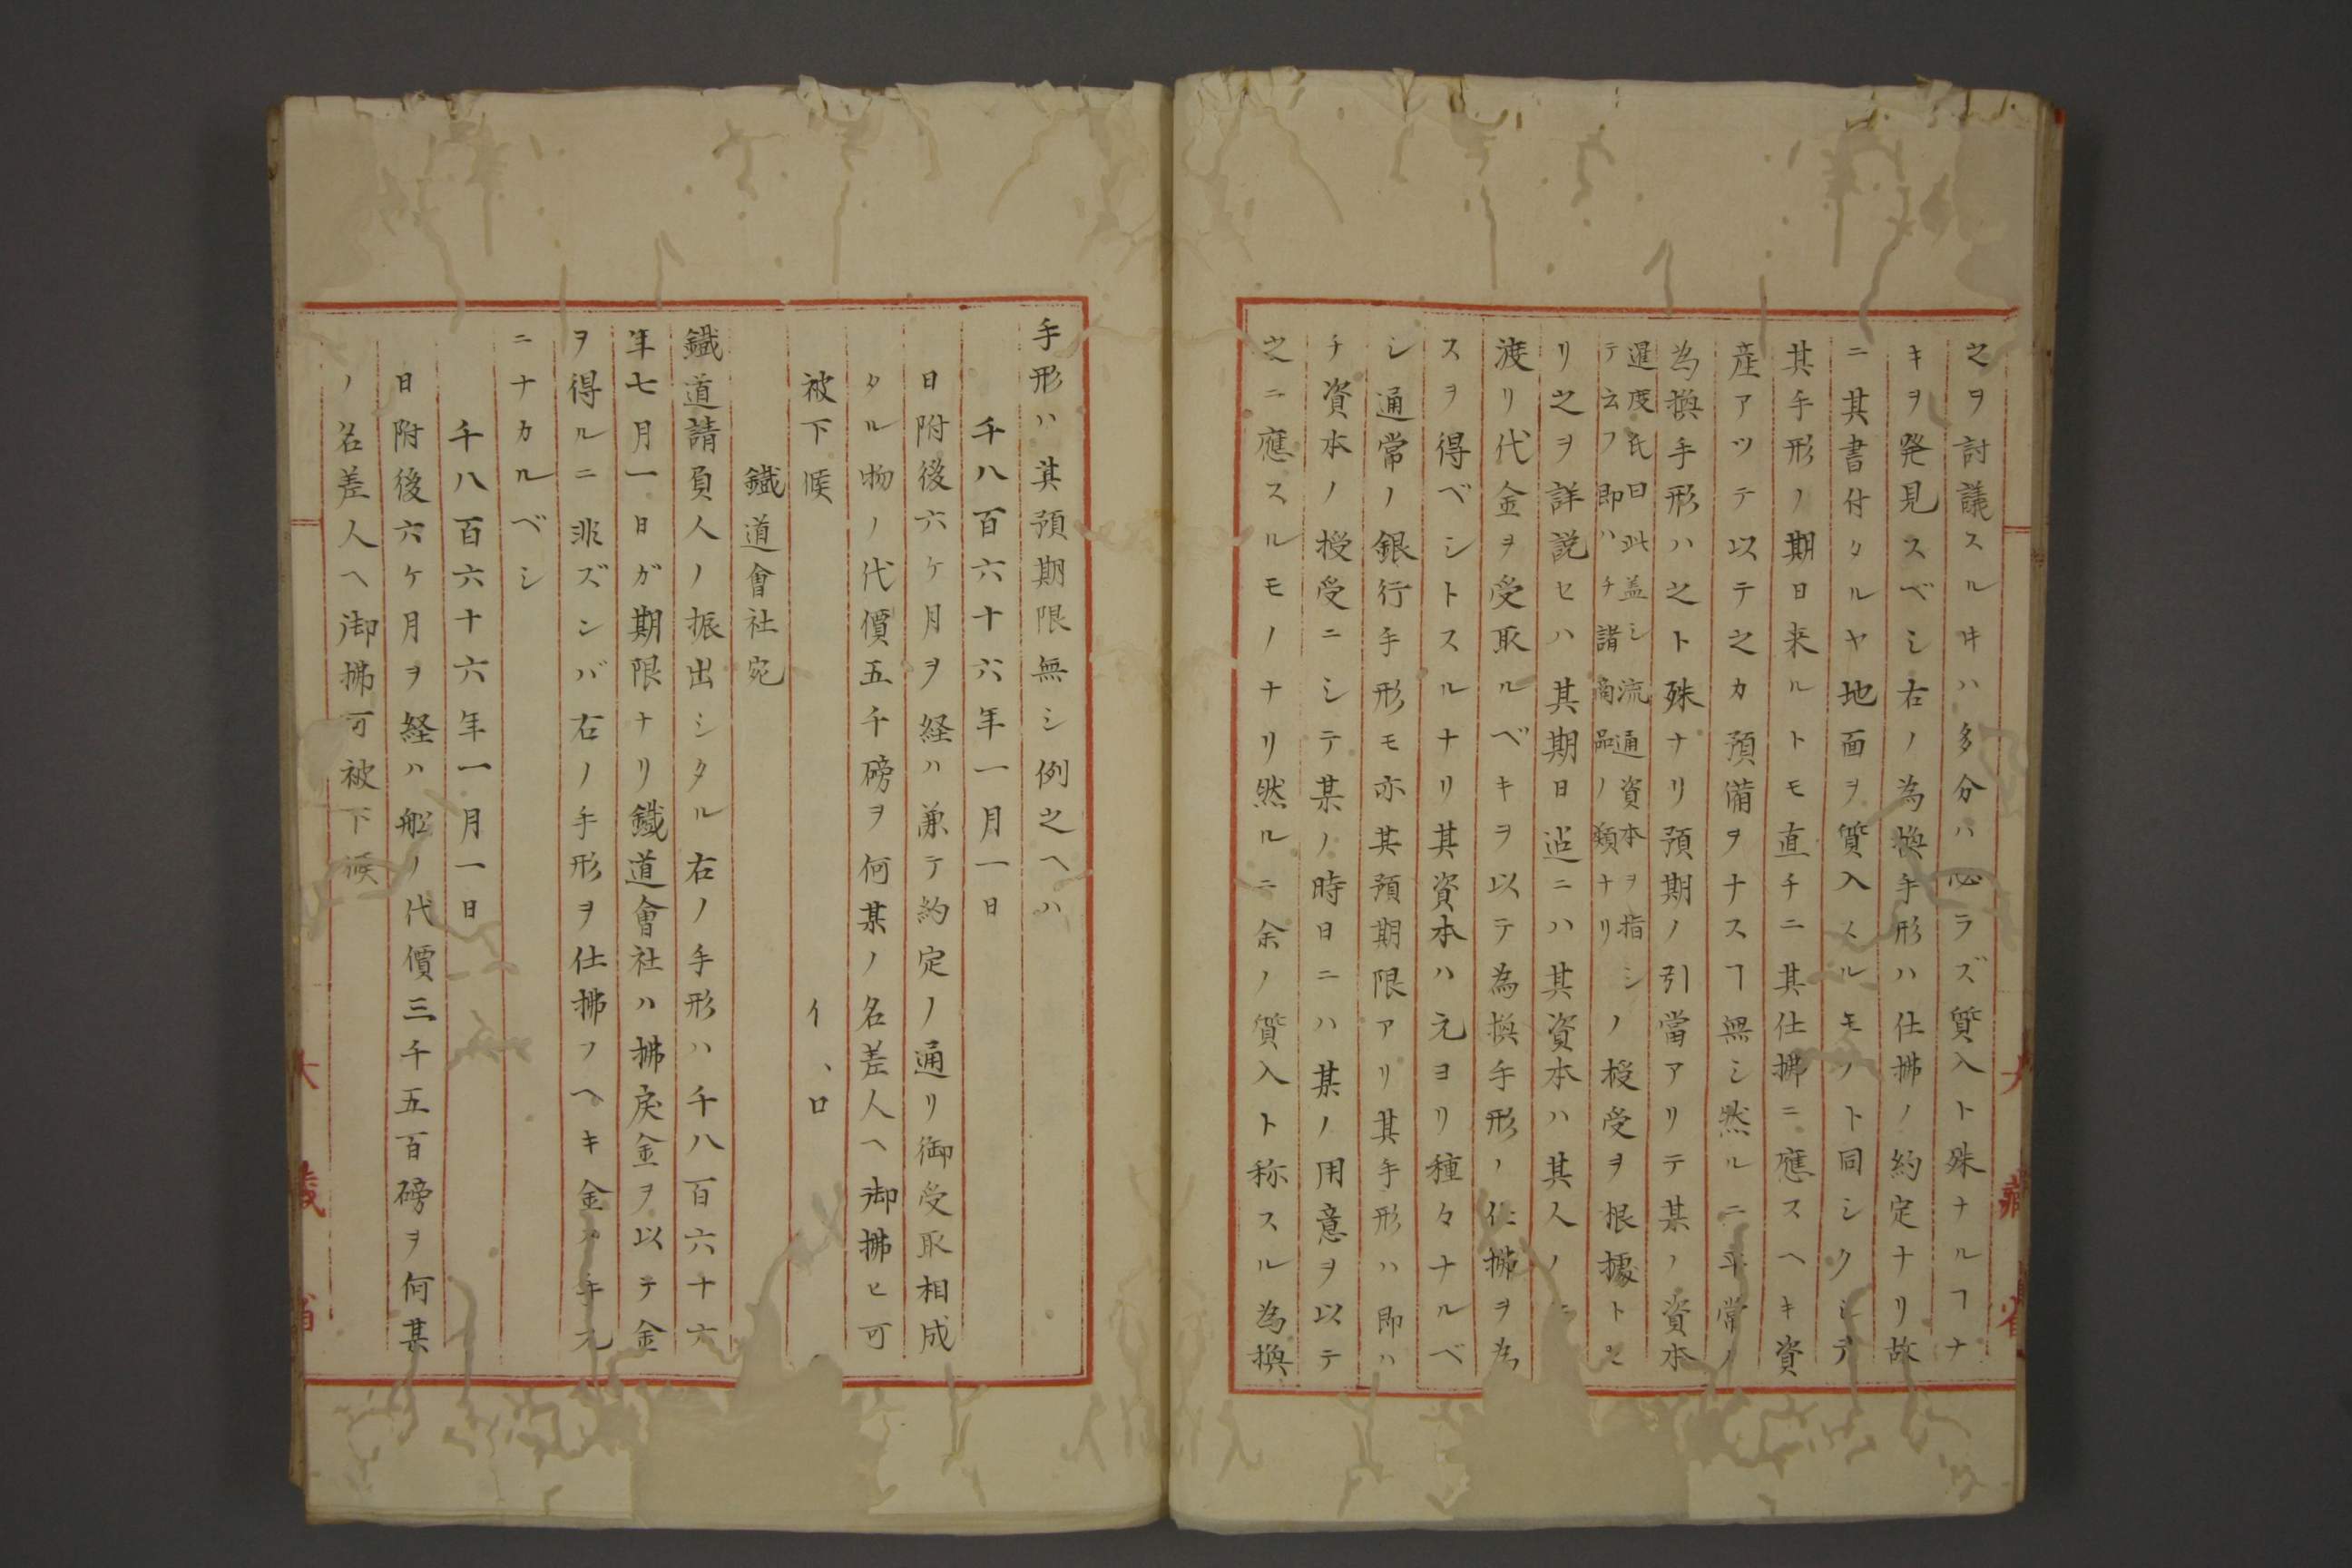 之ヲ討議スルヰハ多分ハ必ラズ質入ト殊ナルヿナ
キヲ発見スベシ右ノ為換手形ハ仕拂ノ約定ナリ故
ニ其書付タルヤ地面ヲ質入スルモノト同シクシテ
其手形ノ期日来ルトモ直チニ其仕拂ニ應スヘキ資
産アツテ以テ之カ預備ヲナスヿ無シ然ルニ平常ノ
為換手形ハ之ト殊ナリ預期ノ引當アリテ某ノ資本
暹度氏曰此盖シ流通資本ヲ指シ
テ云フ即ハチ諸商品ノ類ナリ
ノ授受ヲ根據トセ
リ之ヲ詳説セハ其期日迠ニハ其資本ハ其人ノ
渡リ代金ヲ受取ルベキヲ以テ為換手形ノ仕拂ヲ為
スヲ得ベシトスルナリ其資本ハ元ヨリ種々ナルベ
シ通常ノ銀行手形モ亦其預期限アリ其手形ハ即ハ
チ資本ノ授受ニシテ某ノ時日ニハ某ノ用意ヲ以テ
之ニ應スルモノナリ然ルニ余ノ質入ト称スル為換
大藏省
手形ハ其預期限無シ例之ヘハ
千八百六十六年一月一日
日附後六ケ月ヲ経ハ兼テ約定ノ通リ御受取相成
タル物ノ代價五千磅ヲ何某ノ名差人ヘ御拂ヒ可
被下候
イ、ロ
鐵道會社宛
鐵道請負人ノ振出シタル右ノ手形ハ千八百六十六
年七月一日ガ期限ナリ鐵道會社ハ拂戻金ヲ以テ金
ヲ得ルニ非ズンバ右ノ手形ヲ仕拂フヘキ金ハ手元
ニナカルベシ
千八百六十六年一月一日
日附後六ケ月ヲ経ハ船ノ代價三千五百磅ヲ何某
ノ名差人ヘ御拂可被下候
大藏省